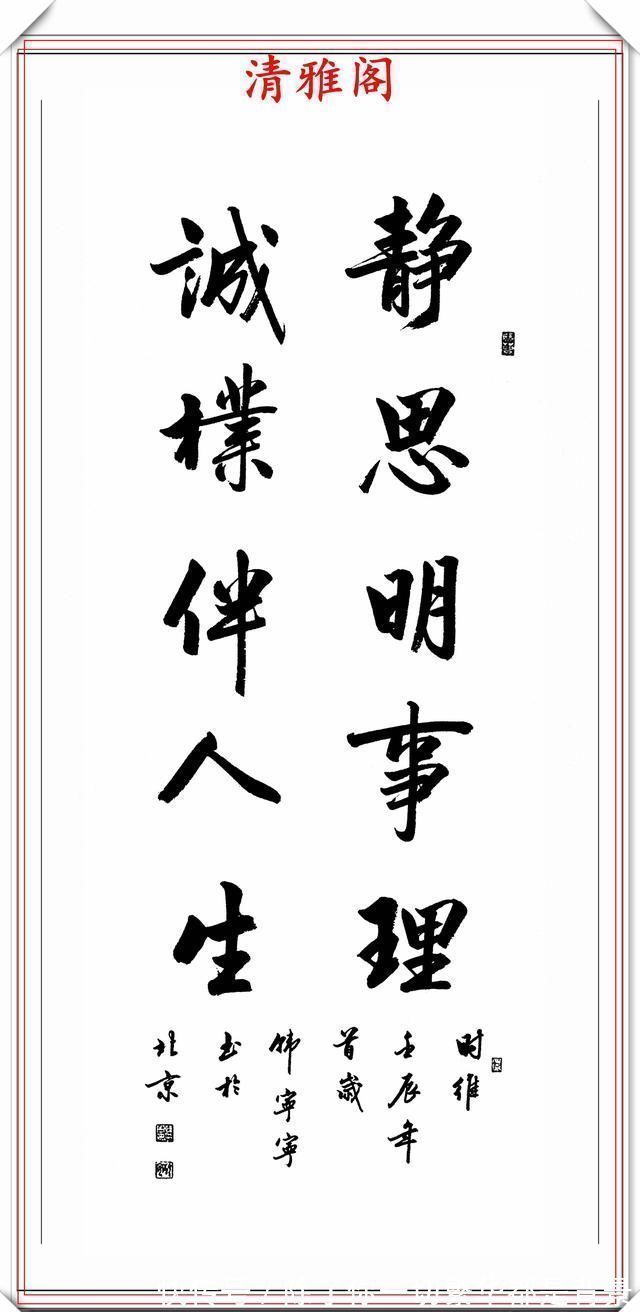 清雅阁
静思明事理
誠樸伴人生
时维
壬辰年
首歲
韩寧寧
书於
北京